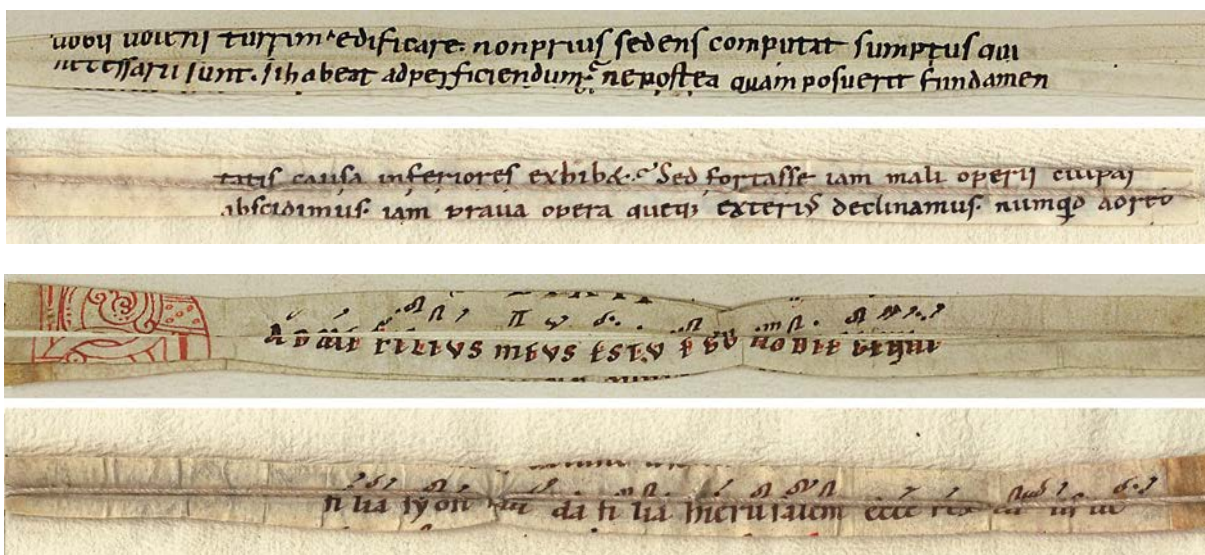 uobis uolens turrim edificare. non prius sedens computat sumptus qui
necessarii sunt. si habeat ad perficiendum. ne postea quam posuerit fundamen
tatis causa inferiores exhibet. Sed fortasse iam mali operis culpas
abscidimus. iam praua opera queq; exterius declinamus. numquid
filius meus es tu ego hodie
filia syon da filia hierusalem ecce rex